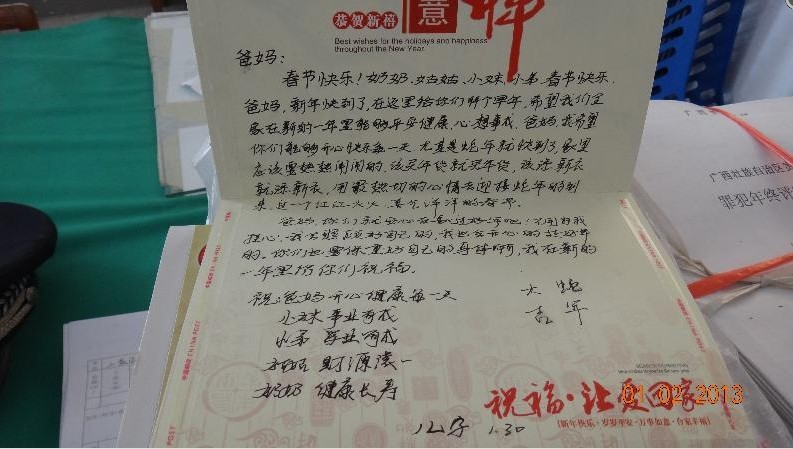 恭贺新禧
意
祥
Best wishes for the holidays and happiness
throughout the New Year.
爸妈：
春节快乐！奶奶、姑姑、小妹、小弟、春节快乐.
爸妈，新年快到了，在这里给你们拜个早年，希望我们全
家在新的一年里能够平安健康、心想事成。爸妈，我希望
你们能够开心快乐每一天，尤其是蛇年就快到了，家里
应该要热热闹闹的，该买年货就买年货，该添新衣
就添新衣，用最热切的心情去迎接蛇年的到
来，过一个红红火火、喜气洋洋的春节。
爸妈，你们就安心在家过好年吧！不用为我
担心，我会照顾好自己的，我也会开心的
的。你们也要保重好自己的身体啊，我在新的
一年里为你们祝福。
祝：爸妈开心健康每一天
小妹事业有成
小弟 学业有成
姑姑 财源
奶奶 健康长寿
大
吉 年
儿字 1.30
祝福·让爱回家
01/02/2013
中国邮政 CHINA POST
POST
广西壮族自治区
罪犯年终评